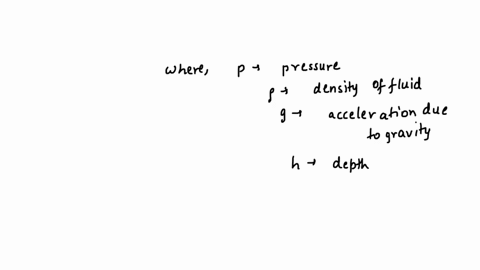 where, p → pressure
ρ → density of fluid
g → acceleration due
to gravity
h → depth